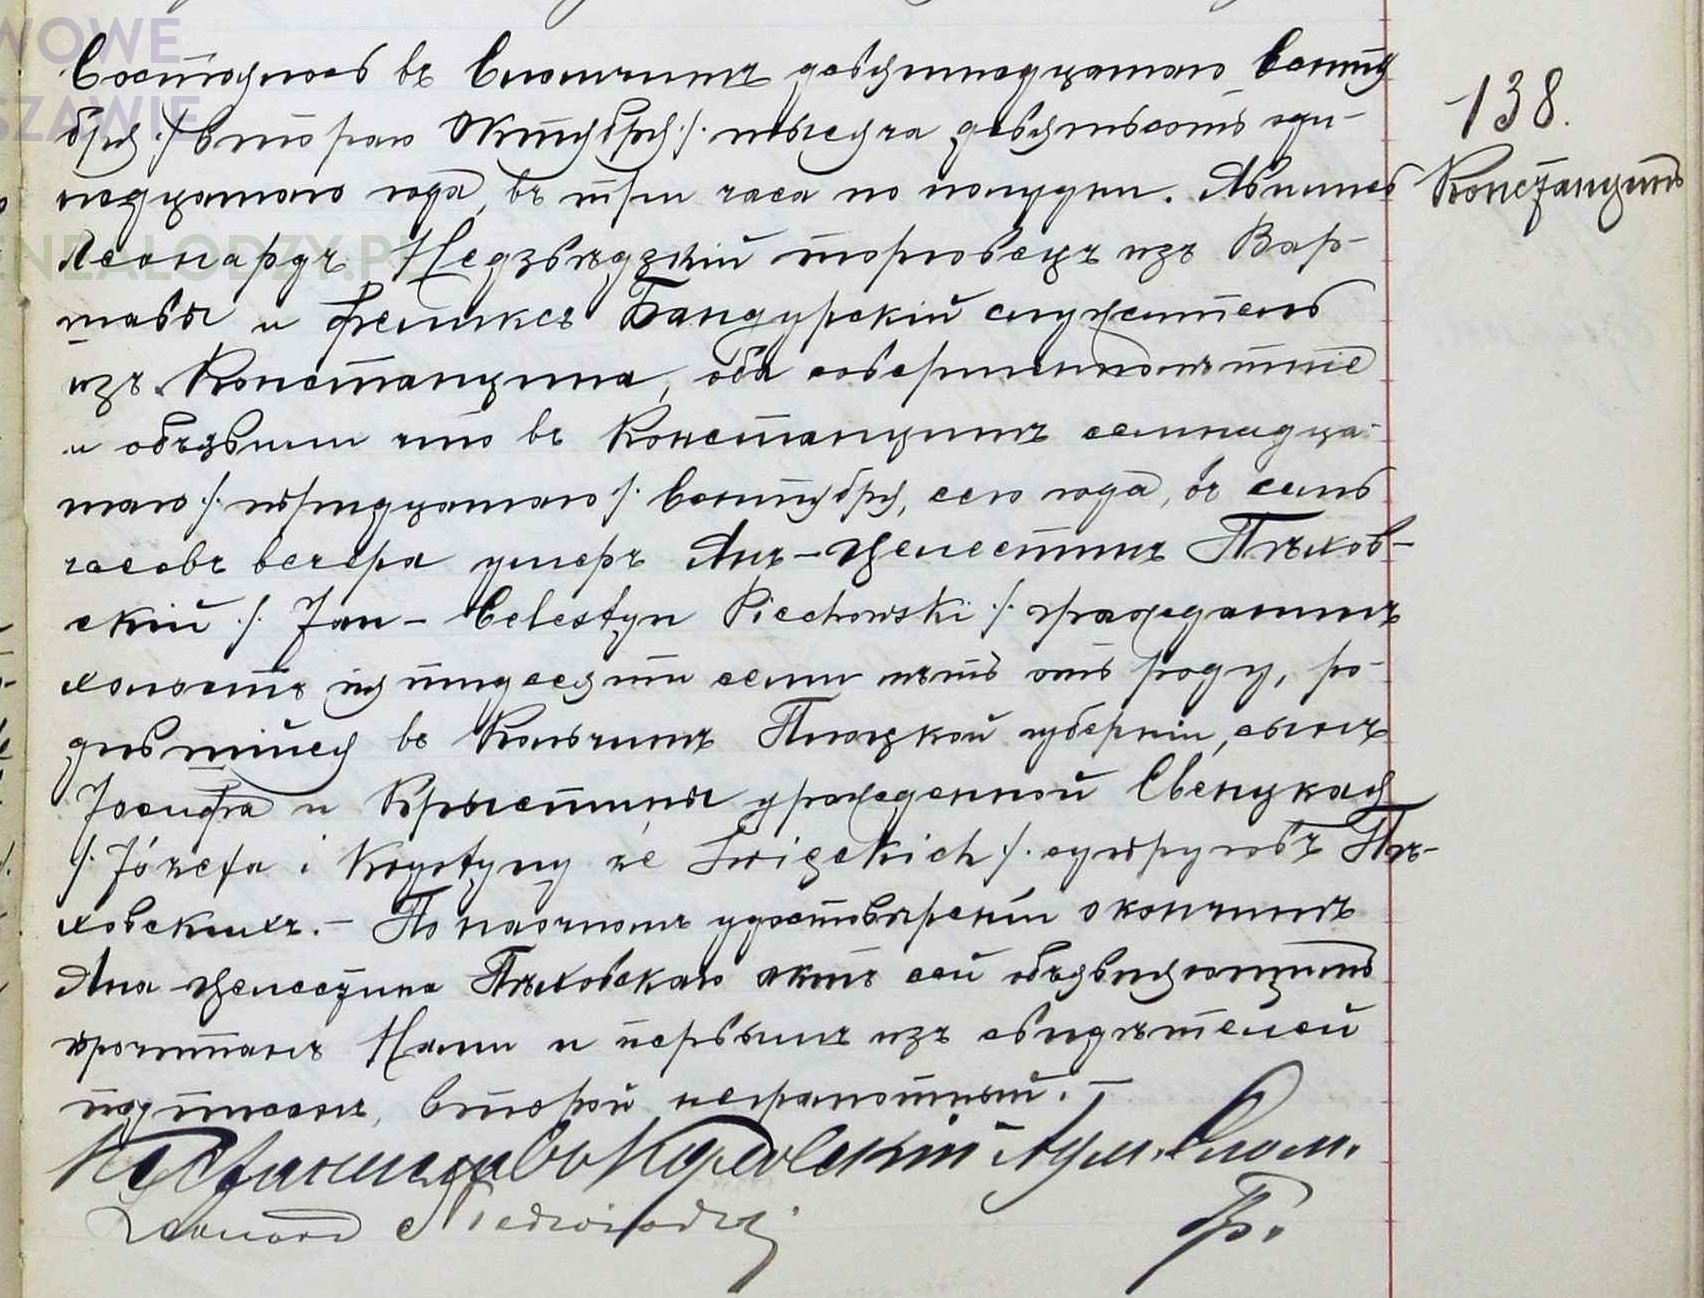 WOWE
SZAWIE
GENEALODZY.PL
Состоялось въ Сломчинѣ девятнадцатаго Сентя
бря ./. втораго Октября ./. тысяча девятьсотъ оди-
надцатаго года, въ три часа по полудни. Явились
Леонардъ Недзвѣдзкій торговецъ изъ Вар-
шавы и Феликсъ Бандурскій служитель
изъ Константина, оба совершеннолѣтніе
и объявили что въ Константинѣ семнадца-
таго ./. тридцатаго ./. Сентября, сего года, въ семь
часовъ вечера умеръ Янъ-Целестинъ Пѣхов-
скій ./. Jan - Celestyn Piechowski ./. гражданинъ
холостъ пятидесяти семи лѣтъ отъ роду, ро-
дившійся въ Кольчинѣ Плоцкой губерніи, сынъ
Іосифа и Крыстины урожденной
./. Józefa i Krystyny ze ./. супруговъ Пѣ-
ховскихъ. - По наочномъ удостовѣреніи о кончинѣ
Яна Целестина Пѣховскаго актъ сей объявляющимъ
прочитанъ Нами и первымъ изъ свидѣтелей
подписанъ, второй неграмотный. -
138.
Констанцинъ